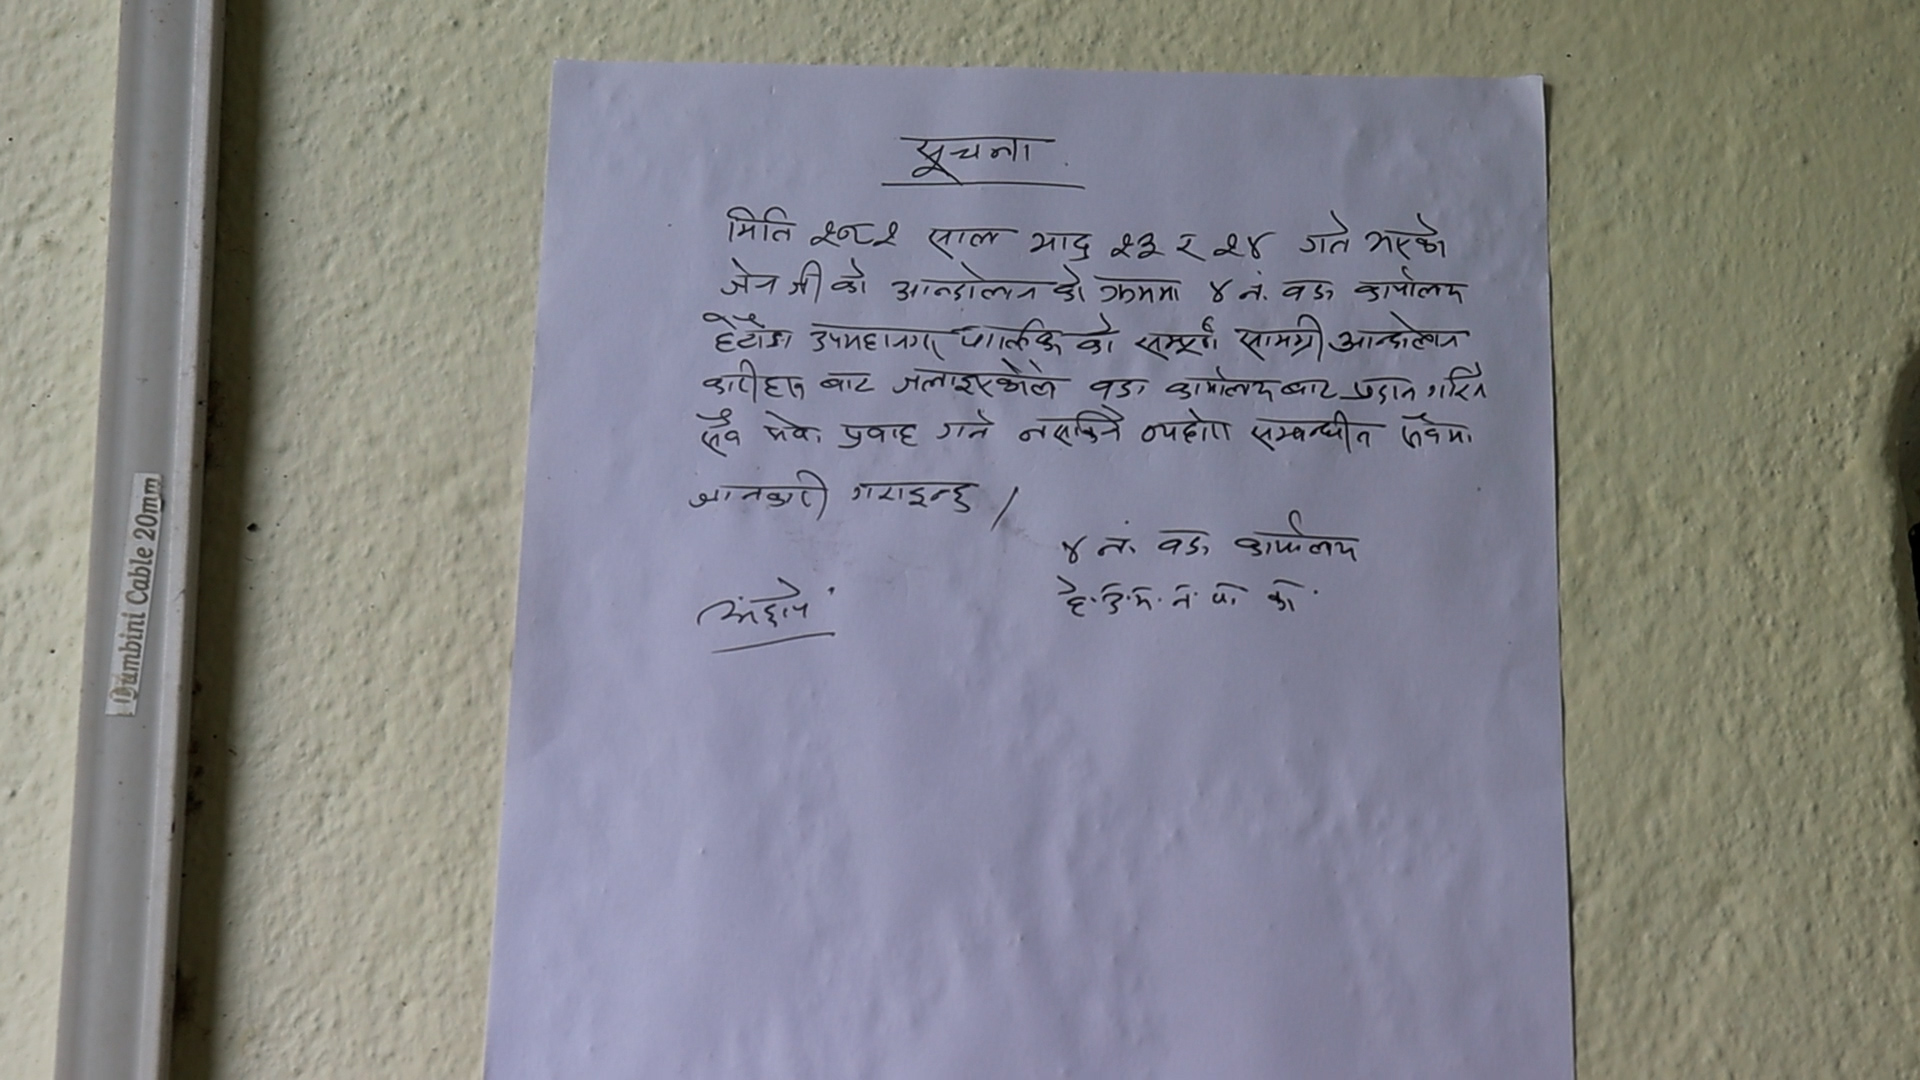 सूचना
मिति २०८२ साल भाद्र २३ र २४ गते भएको
जेन जी को आन्दोलन को क्रममा ४ नं. वडा कार्यालय
हेटौडा उपमहानगर पालिका को सम्पूर्ण सामग्री आन्दोलन
कारीहरु बाट जलाइएकोले वडा कार्यालय बाट प्रदान गरिने
सबै सेवा प्रवाह गर्न नसकिने व्यहोरा सम्बन्धीत सबैमा
जानकारी गराइन्छ ।
४ नं. वडा कार्यालय
हे. उ. म. न. पा. को
Dumbini Cable 20mm